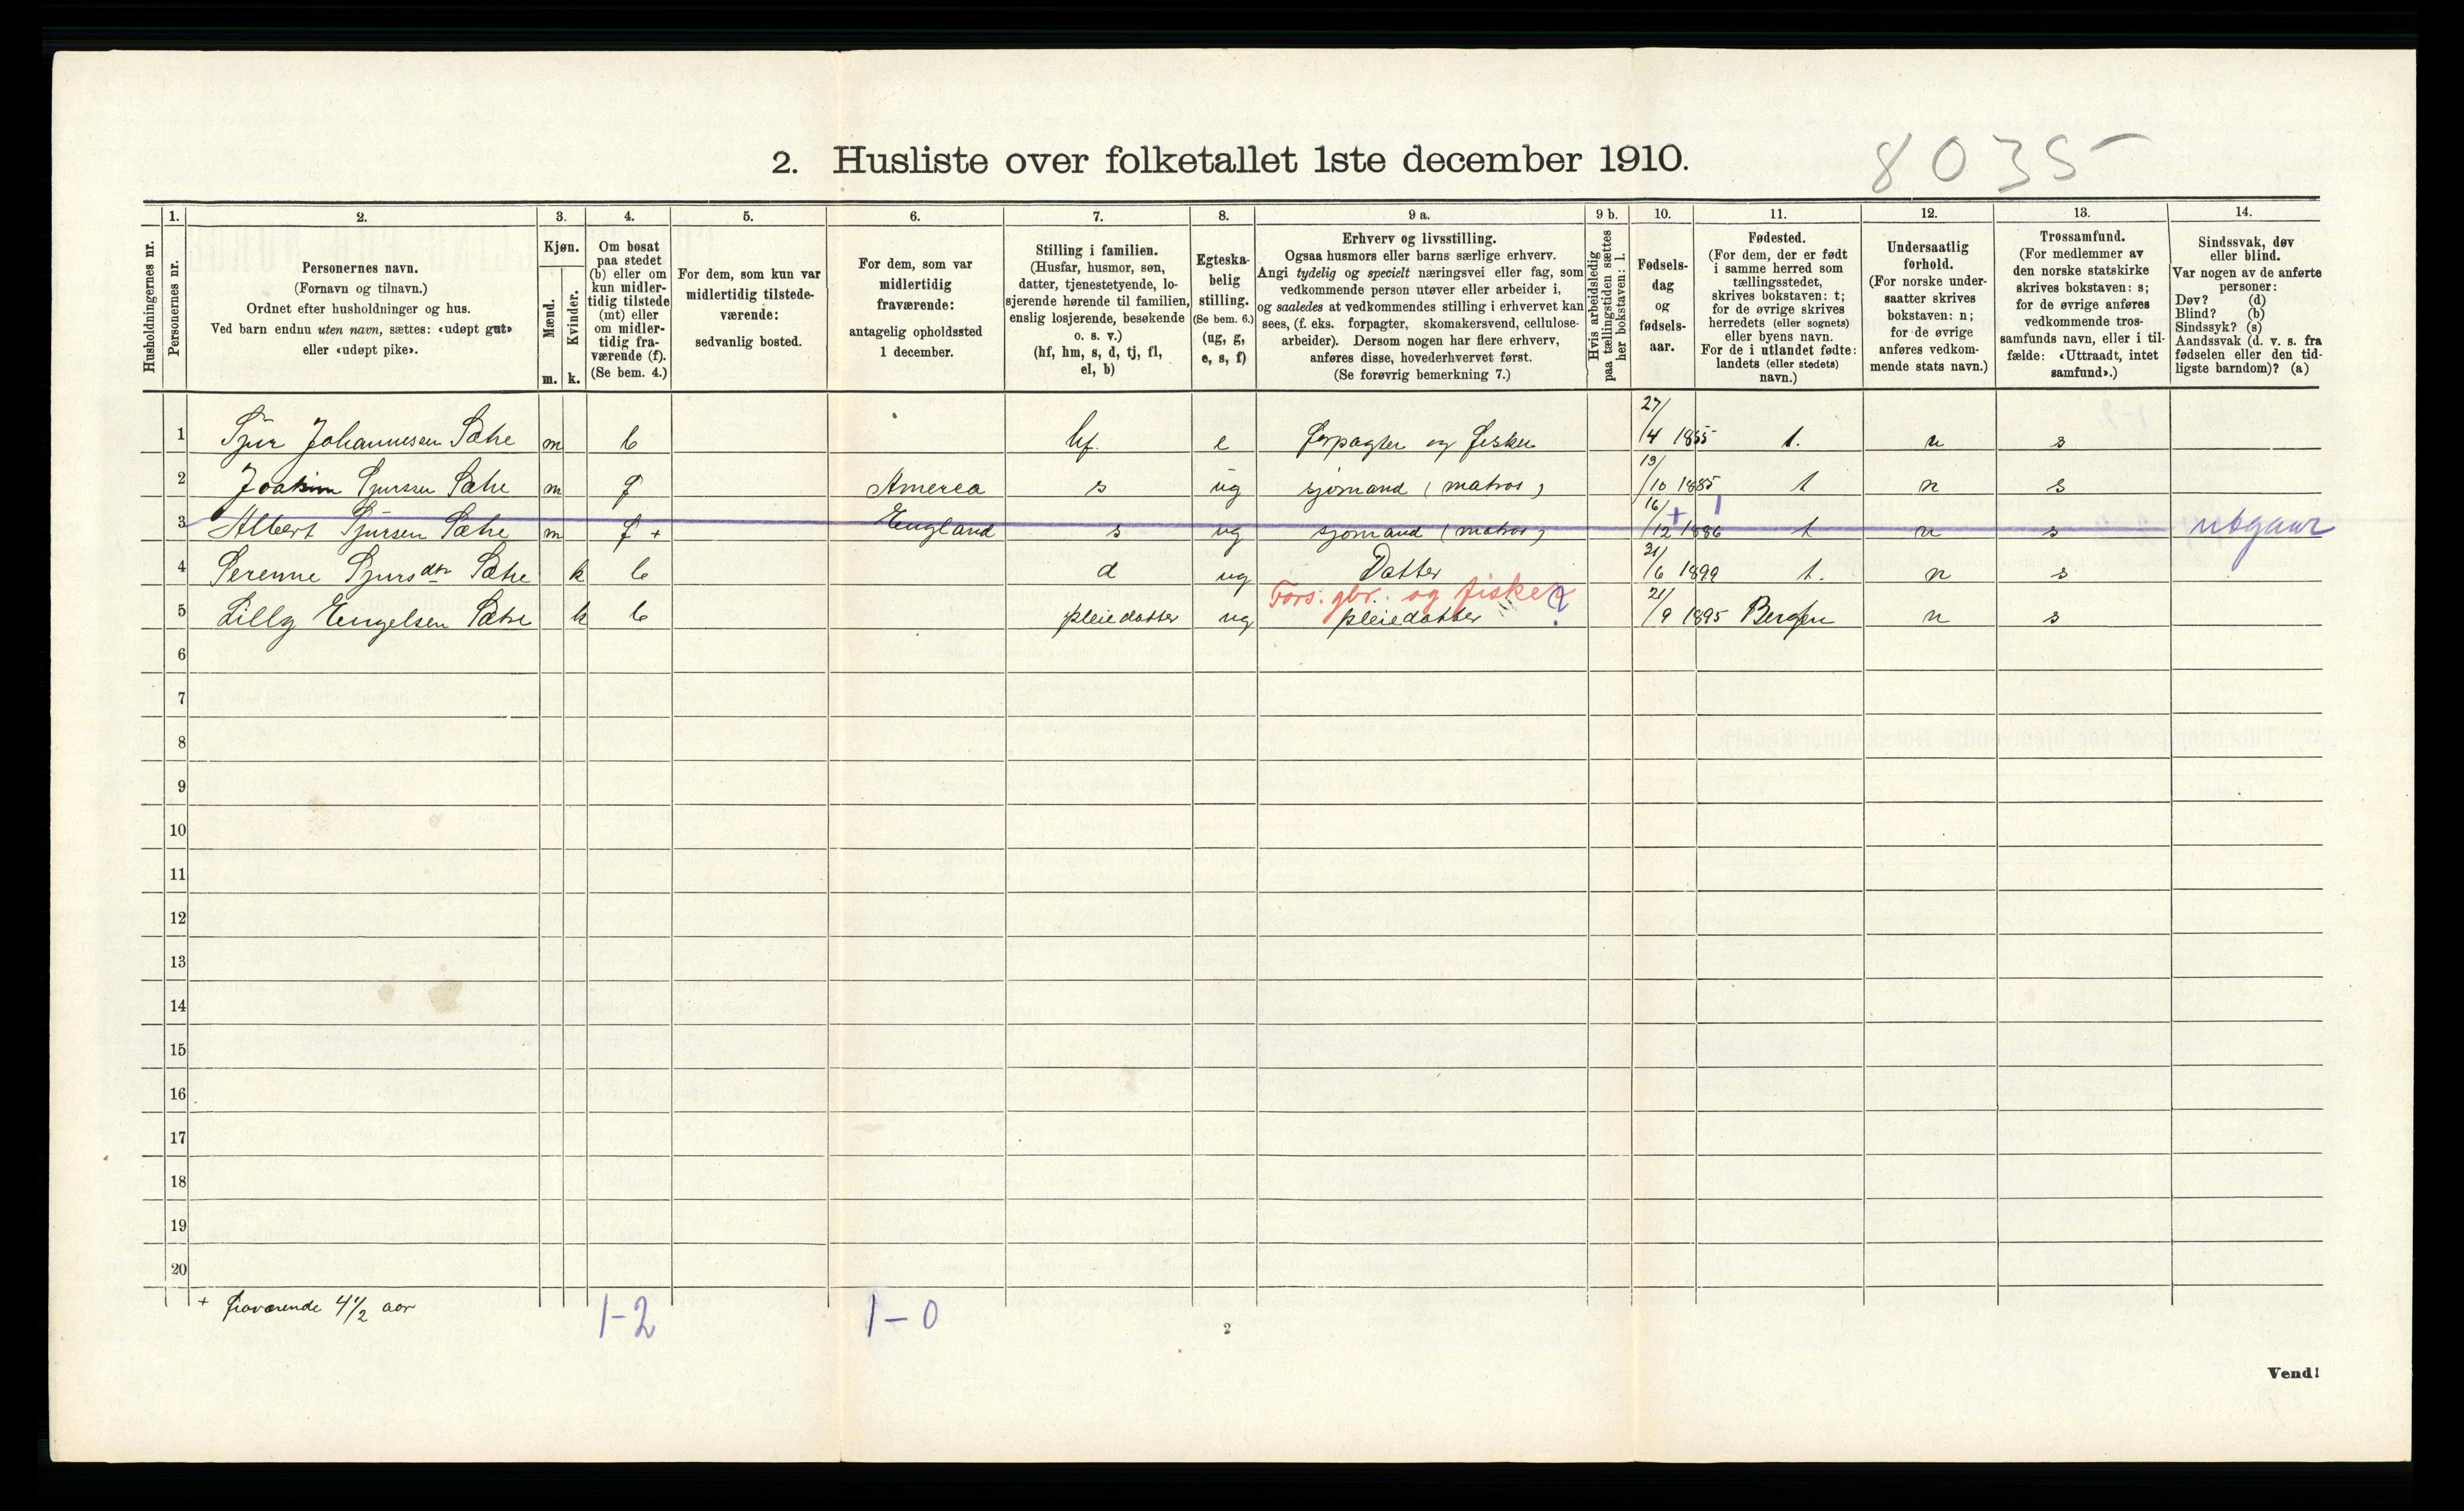 2. Husliste over folketallet 1ste december 1910.
8035
Husholdningernes nr.
1. Personernes nr.
2. Personernes navn.
(Fornavn og tilnavn.)
Ordnet efter husholdninger og hus.
Ved barn endnu uten navn, sættes: «udøpt gut»
eller «udøpt pike».
3. Kjøn.
Mænd. m.
Kvinder. k.
4. Om bosat
paa stedet
(b) eller om
kun midler-
tidig tilstede
(mt) eller
om midler-
tidig fra-
værende (f).
(Se bem. 4.)
5. For dem, som kun var
midlertidig tilstede-
værende:
sedvanlig bosted.
6. For dem, som var
midlertidig
fraværende:
antagelig opholdssted
1 december.
7. Stilling i familien.
(Husfar, husmor, søn,
datter, tjenestetyende, lo-
sjerende hørende til familien,
enslig losjerende, besøkende
o. s. v.)
(hf, hm, s, d, tj, fl,
el, b)
8. Egteska-
belig
stilling.
(Se bem. 6.)
(ug, g,
e, s, f)
9 a. Erhverv og livsstilling.
Ogsaa husmors eller barns særlige erhverv.
Angi tydelig og specielt næringsvei eller fag, som
vedkommende person utøver eller arbeider i,
og saaledes at vedkommendes stilling i erhvervet kan
sees, (f. eks. forpagter, skomakersvend, cellulose-
arbeider). Dersom nogen har flere erhverv,
anføres disse, hovederhvervet først.
(Se forøvrig bemerkning 7.)
9 b. Hvis arbeidsledig
paa tællingstiden sættes
her bokstaven: l.
10. Fødsels-
dag
og
fødsels-
aar.
11. Fødested.
(For dem, der er født
i samme herred som
tællingsstedet,
skrives bokstaven: t;
for de øvrige skrives
herredets (eller sognets)
eller byens navn.
For de i utlandet fødte:
landets (eller stedets)
navn.)
12. Undersaatlig
forhold.
(For norske under-
saatter skrives
bokstaven: n;
for de øvrige
anføres vedkom-
mende stats navn.)
13. Trossamfund.
(For medlemmer av
den norske statskirke
skrives bokstaven: s;
for de øvrige anføres
vedkommende tros-
samfunds navn, eller i til-
fælde: «Uttraadt, intet
samfund».)
14. Sindssvak, døv
eller blind.
Var nogen av de anførte
personer:
Døv? (d)
Blind? (b)
Sindssyk? (s)
Aandssvak (d. v. s. fra
fødselen eller den tid-
ligste barndom)? (a)
1 Sjur Johannesen Sætre m b hf. e forpagter og fisker 27/4 1855 t. n s
2 Joakim Sjursen Sætre m f Amerea s ug sjømand (matros) 13/10 1885 t n s
3 Albert Sjursen Sætre m f + England s ug sjomand (matros) 16/12 1886 t n s utgaar
4 Serenne Sjursdtr Sætre k b d ug Datter 21/6 1899 t. n s
Fors. gbr. og fisker ?
5 Lilly Engelsen Sætre k b pleiedatter ug pleiedatter 21/9 1895 Bergen n s
6
7
8
9
10
11
12
13
14
15
16
17
18
19
20
+ fraværende 4 1/2 aar
1-2
1-0
2
Vend!